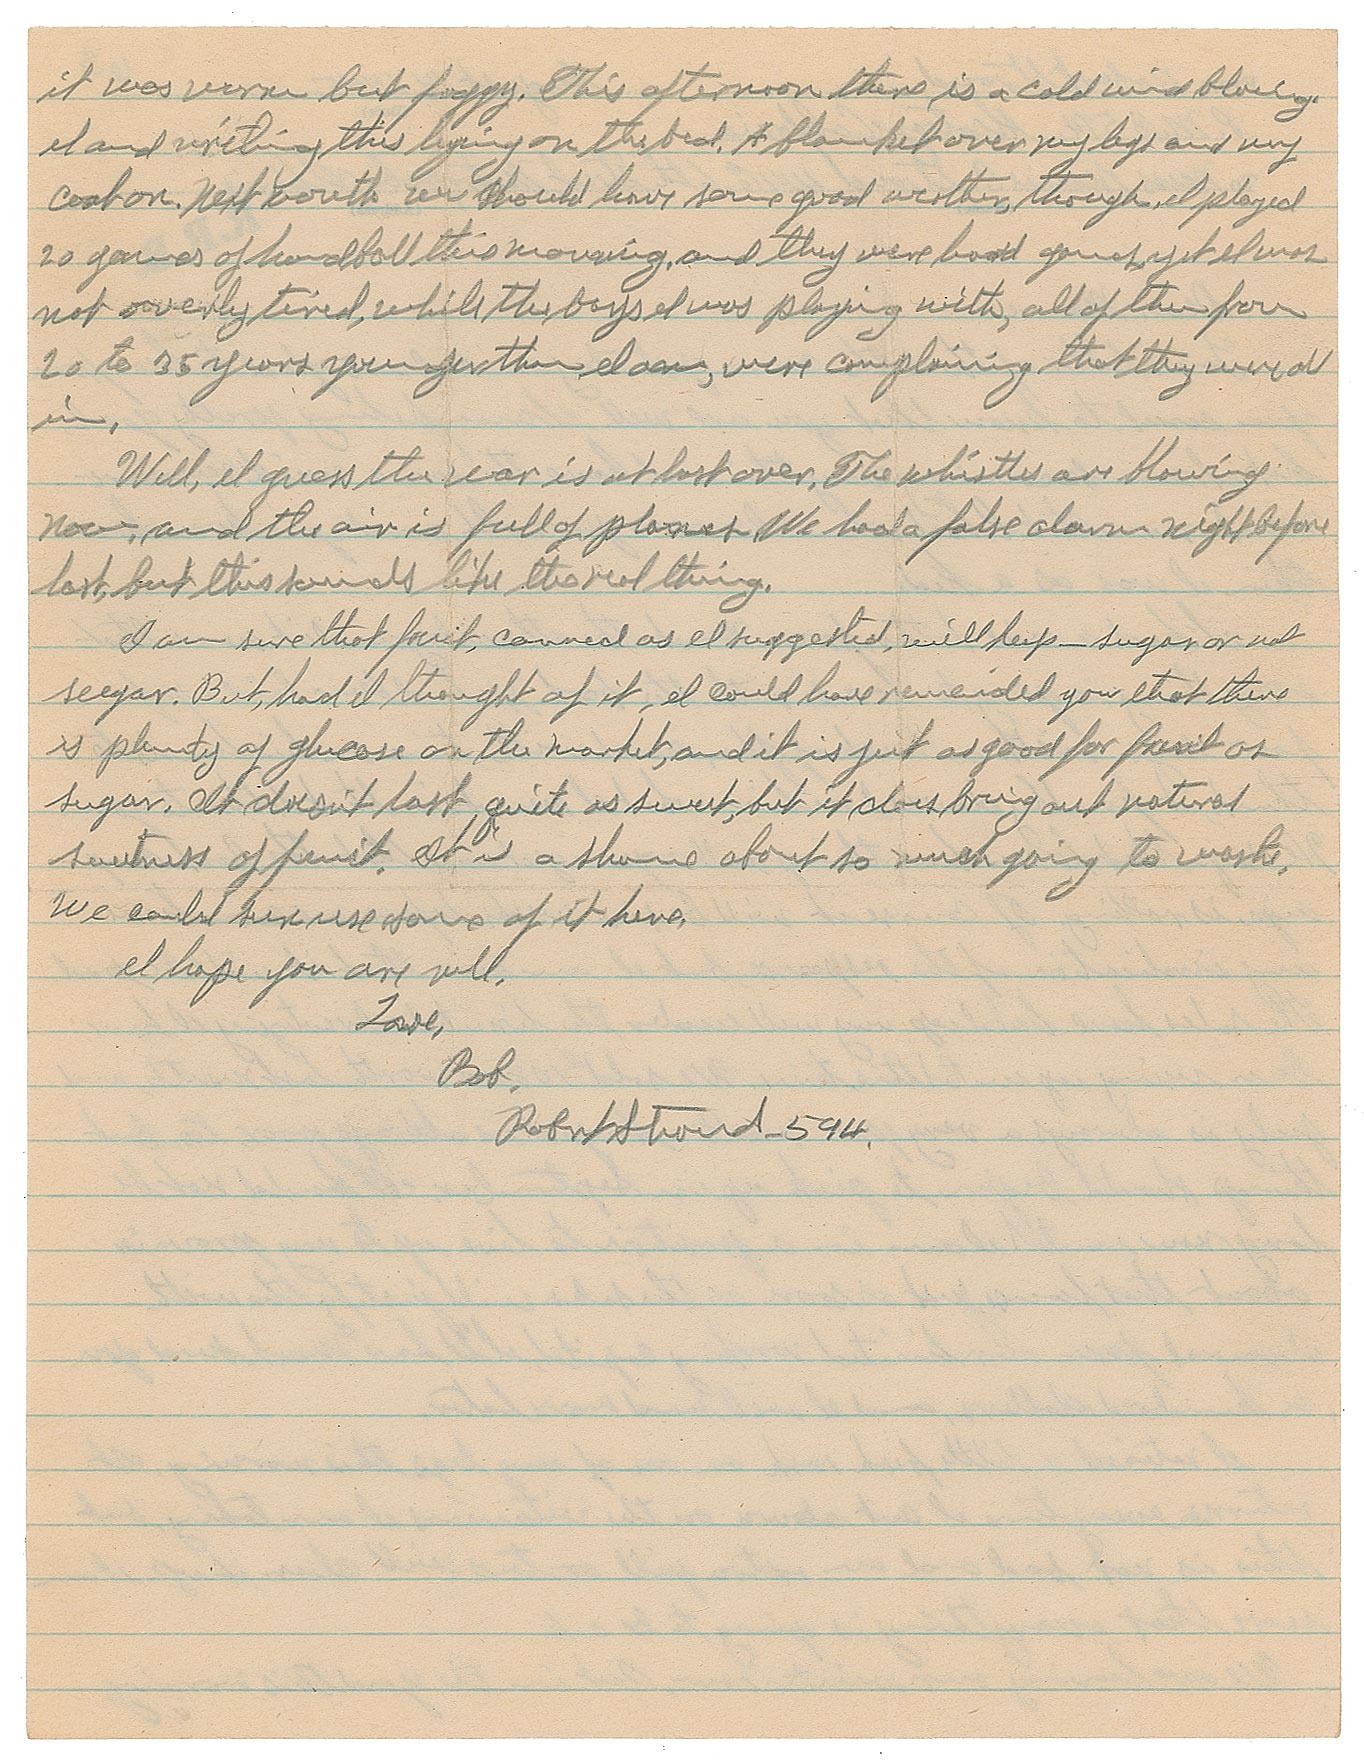 it was warm but foggy. This afternoon there is a cold wind blowing.
I am writing this lying on the bed. A blanket over my legs and my
coat on. Next month we should have some good weather, though. I played
20 games of handball this morning, and they were hard games, yet I was
not overly tired, while the boys I was playing with, all of them from
20 to 35 years younger than I am, were complaining that they were all
in.
Well, I guess the war is at last over. The whistles are blowing
now, and the air is full of planes. We had a false alarm night before
last, but this sounds like the real thing.
I am sure that fruit, canned as I suggested, will keep – sugar or not
sugar. But, had I thought of it, I could have reminded you that there
is plenty of glucose on the market, and it is just as good for fruit as
sugar. It doesn't tast quite as sweet, but it does bring out natural
sweetness of fruit. It is a shame about so much going to waste.
We could sure use some of it here.
I hope you are well.
Love,
Bob.
Robert Stroud – 594.